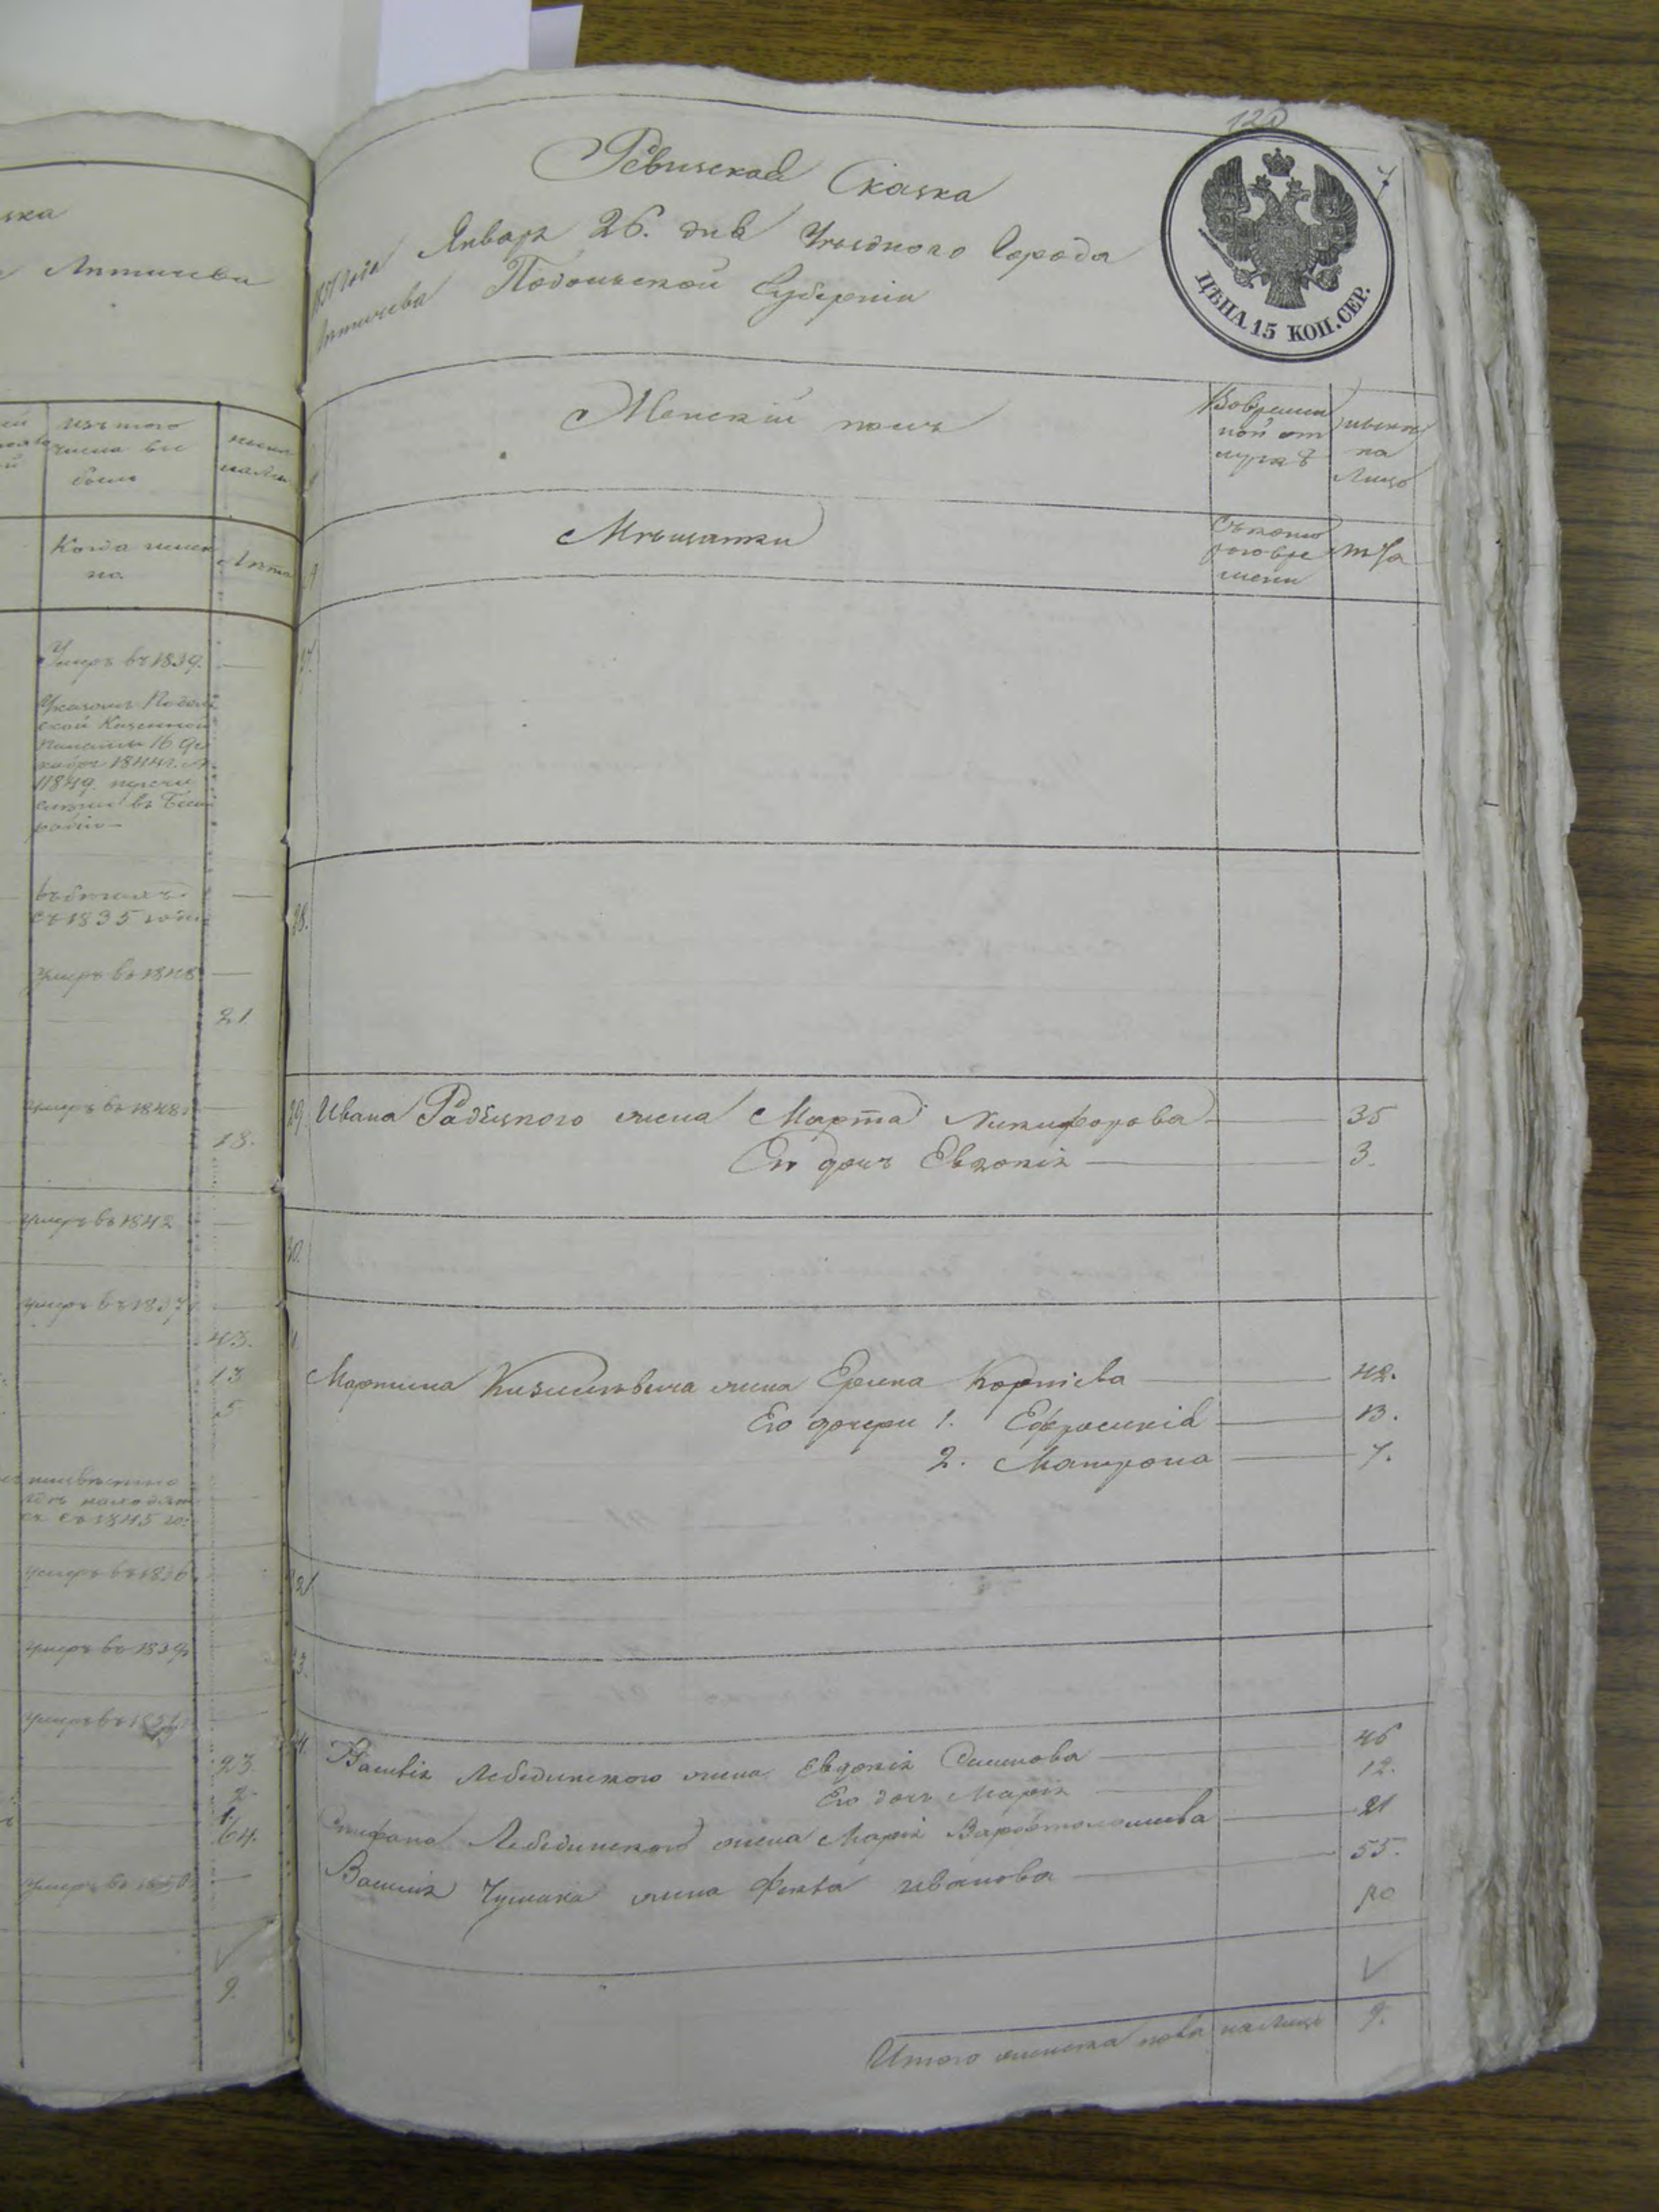 ска
Лѣтичева
изъ того
числа вы
было
Когда имен
но.
Лѣта
Умеръ въ 1839.
Указомъ Подоль
ской Казенной
Палаты 16 де
кабря 1844 г. №
11849. перечи
сленъ въ Бесса
рабію
въ бегахъ
съ 1835 года
умеръ въ 1848
21
умеръ въ 1848
18.
умеръ въ 1842
умеръ въ 1837
43.
13
5
неизвѣстно
гдѣ находят
ся съ 1845 го:
умеръ въ 1836
умеръ въ 1839
умеръ въ
23.
2
64.
умеръ въ 1850
9.
120
Ревизская Сказка
года Января 26. дня Уѣзднаго Города
Лѣтичева Подольской Губерніи
ЦѢНА 15 КОП. СЕР.
Женскій полъ
Вовремен
ной от
лучкѣ
нынѣ
на
Лицо
Мѣщанки
Съ кото
раго вре
мени
Лѣта
27.
28.
29. Ивана Радецкого жена Марта Никифорова 35
Его дочь Евдокія 3.
30.
Мартина Кизилевича жена Ерина Корніева 42.
Его дочери 1. Ефросинія 13.
2. Матрона 7.
Василія Лебединского жена Евдокія Симонова 46
Его дочь Марія 12.
Стефана Лебединского жена Марія Варфоломеева 21
Василія Чумака жена Фекла Иванова 55.
9.
Итого женска пола на Лицо